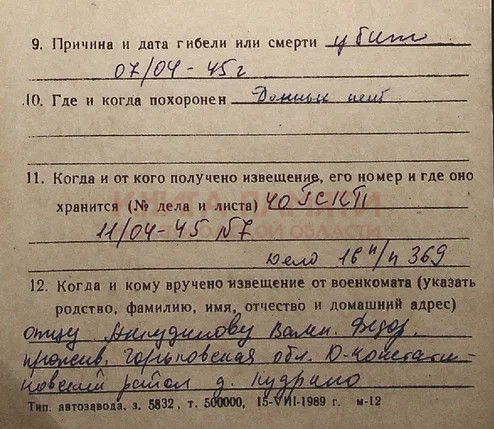 9. Причина и дата гибели или смерти убит
07/04-45г
10. Где и когда похоронен Данных нет
11. Когда и от кого получено извещение, его номер и где оно
хранится (№ дела и листа) 40 ГСКП
11/04-45 №7
дело 16 п/п 369
12. Когда и кому вручено извещение от военкомата (указать
родство, фамилию, имя, отчество и домашний адрес)
отцу Анкудинову Вани. Федор.
прожив. Горьковская обл. Д-Констан-
новский район д. Кудрино
Тип. автозавода, з. 5832, т. 500000, 15-VIII-1989 г. м-12